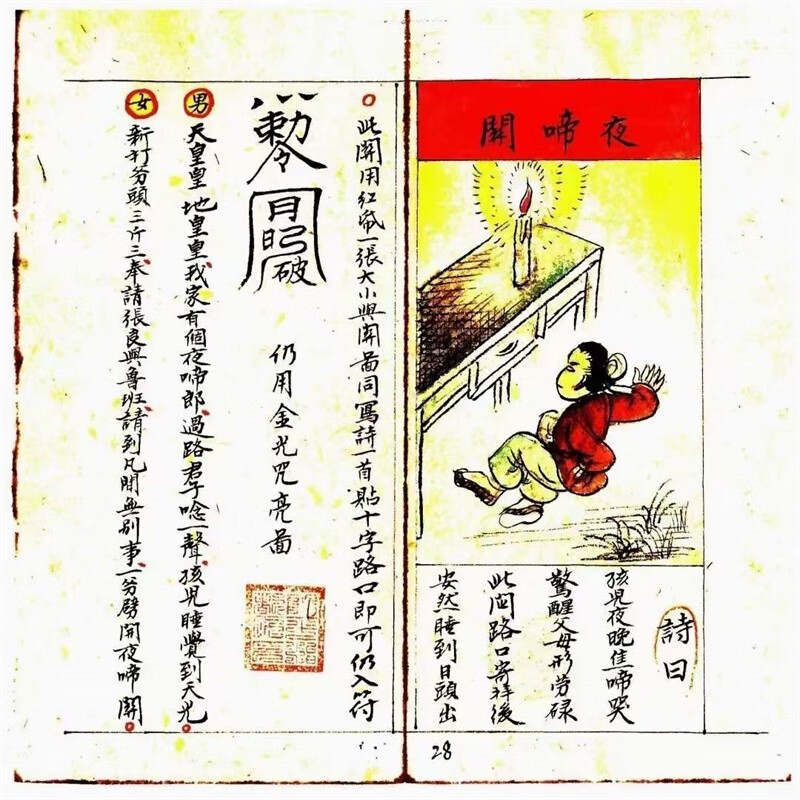 夜啼関
詩曰
孩児夜晚佳啼哭
驚醒父母形劳碌
此関路口寄祥後
安然一睡到日頭出
28
此関用红纸一張大小與関畄同寫詩一首貼十字路口即可仍入符
勅令
破
仍用金光咒亮畄
男 天皇皇地皇皇我家有個夜啼郎過路君子唸一聲孩児睡覺到天光
女 新打斧頭三斤三奉請張良與魯班請到凡間無别事一斧劈開夜啼関